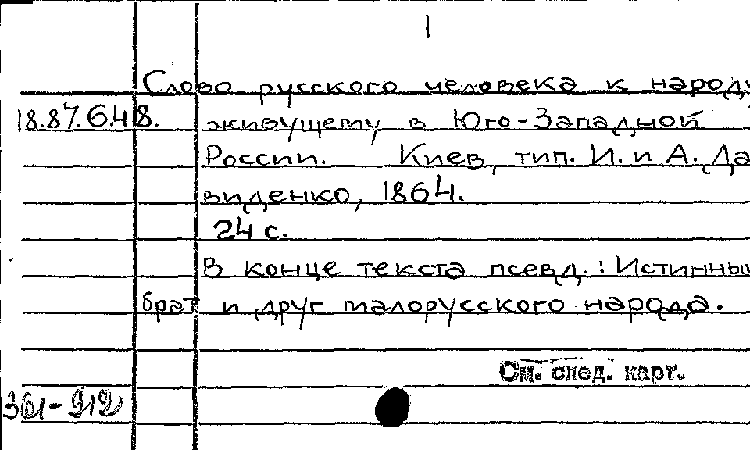 1
Слово русского человека к народу
18.87.6.48. живущему в Юго-Западной
России. Киев, тип. И. и А. Да
виденко, 1864.
24 с.
В конце текста псевд.: Истинный
брат и друг малорусского народа.
См. след. карт.
361-212